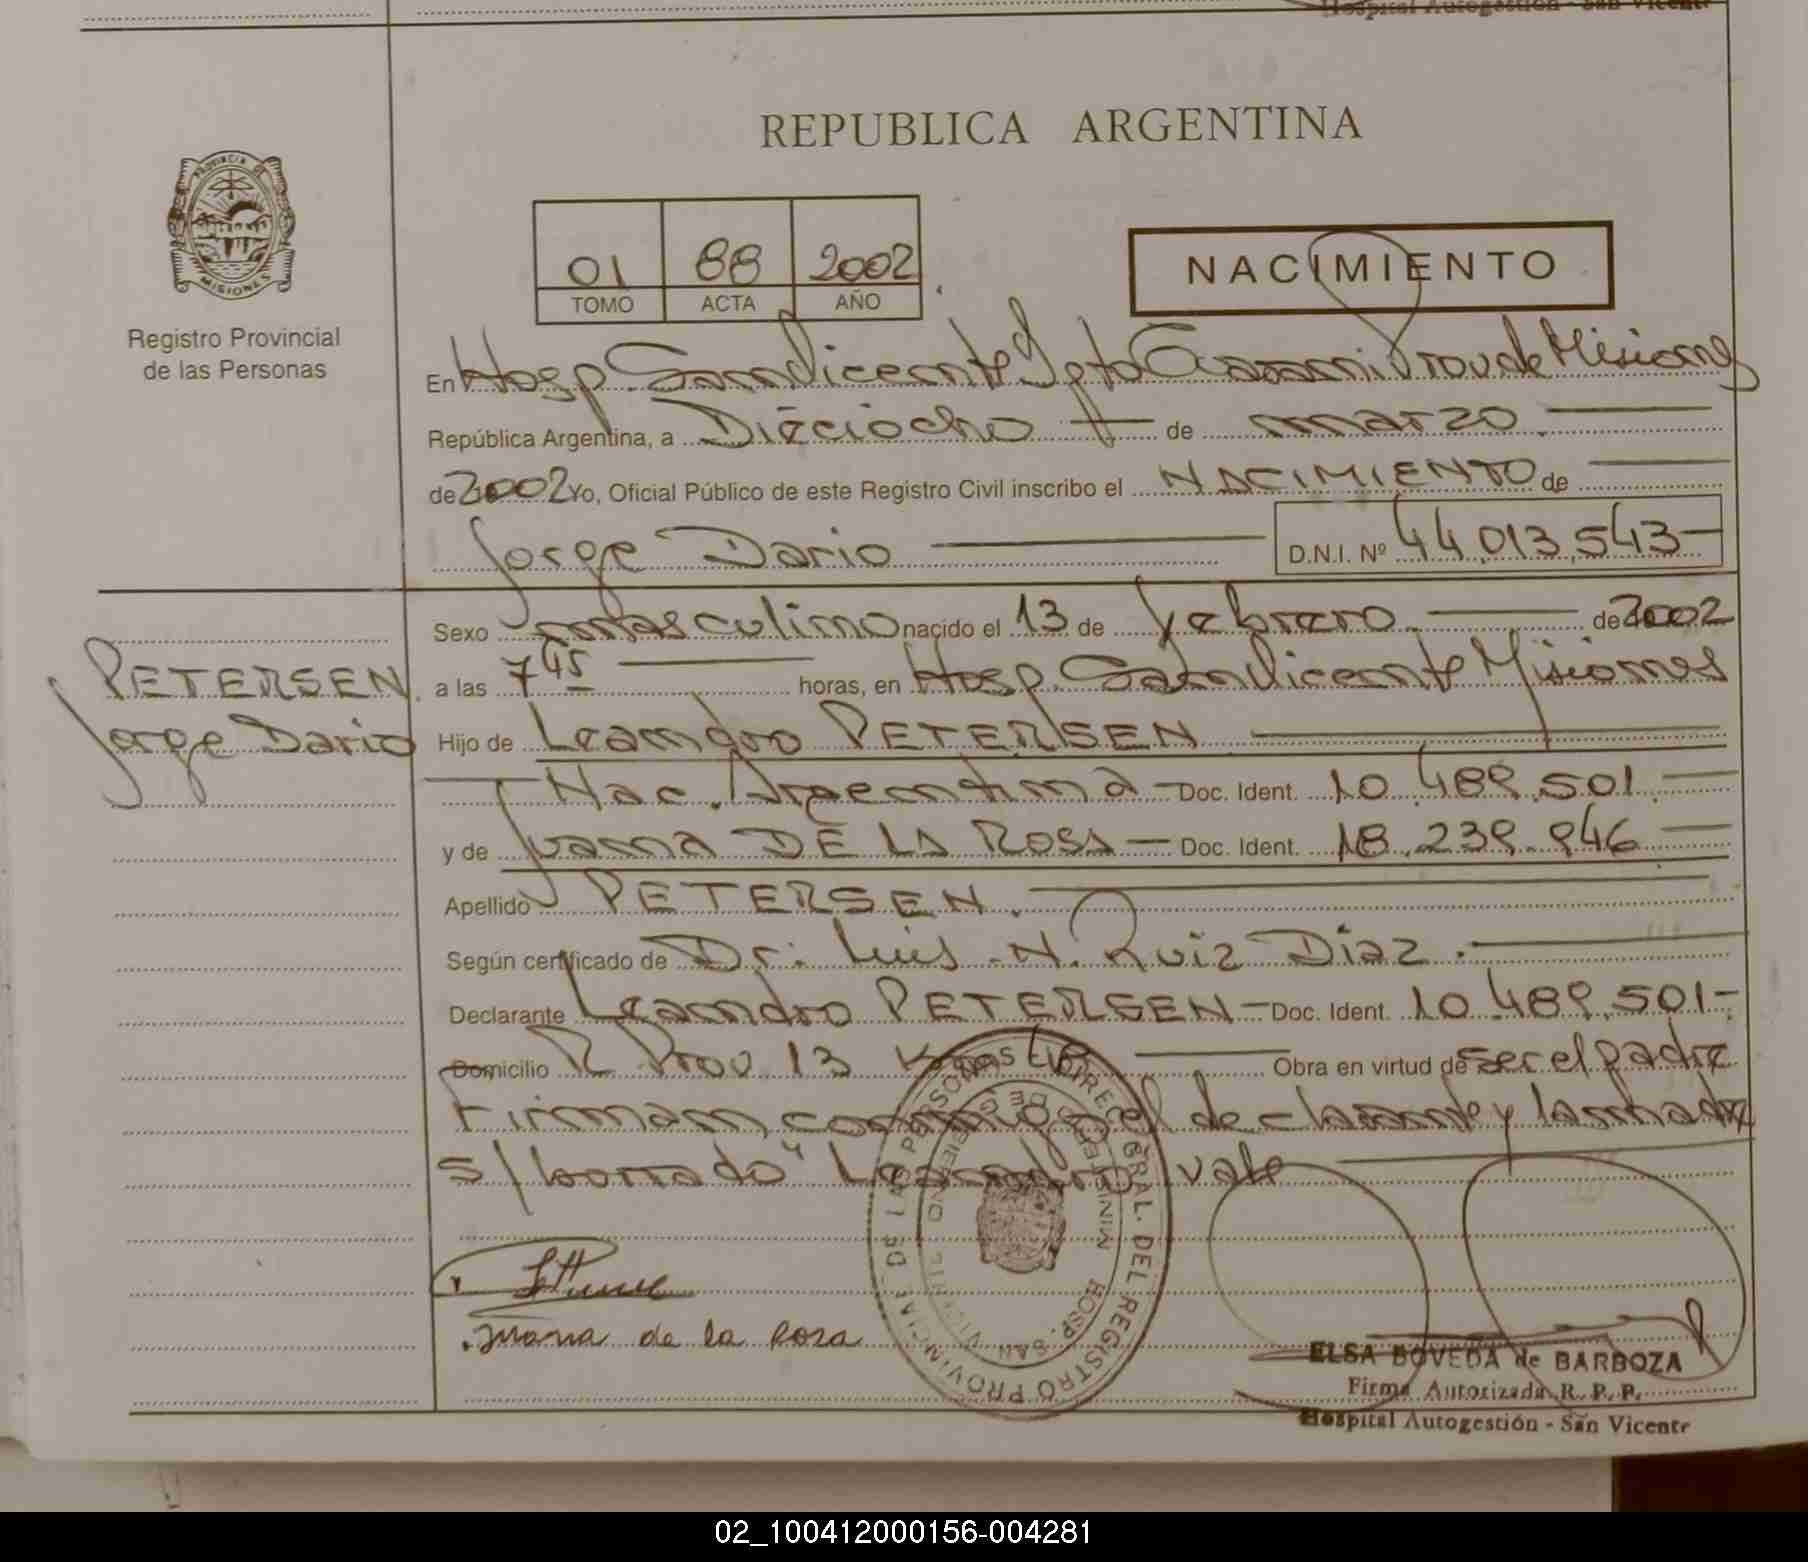 Hospital Autogestión - San Vicente
REPUBLICA ARGENTINA
PROVINCIA DE
MISIONES
Registro Provincial
de las Personas
01 88 2002
TOMO ACTA AÑO
NACIMIENTO
En Hosp. San Vicente Dpto Guarani Prov de Misiones
República Argentina, a Dieciocho de marzo.
de 2002 Yo, Oficial Público de este Registro Civil inscribo el NACIMIENTO de
Jorge Dario D.N.I. Nº 44.013.543
PETERSEN
Jorge Dario
Sexo masculino nacido el 13 de febrero de 2002
a las 7 45 horas, en Hosp. San Vicente Misiones
Hijo de Leandro PETERSEN
Nac. Argentina Doc. Ident. 10.489.501.
y de Juana DE LA ROSA Doc. Ident. 18.239.946
Apellido PETERSEN.
Según certificado de Dr. Luis N. Ruiz Diaz.
Declarante Leandro PETERSEN Doc. Ident. 10.489.501
Domicilio R Prov 13 Obra en virtud de ser el padre
Firman conmigo el declarante y la madre
s/borrado "Leandro" vale
Juana de la Roza
REGISTRO PROVINCIAL DE LAS PERSONAS
DIREC. GRAL. DEL
MINISTERIO DE GOBIERNO
HOSP. SAN VICENTE
ELSA BOVEDA de BARBOZA
Firma Autorizada R. P. P.
Hospital Autogestión - San Vicente
02_100412000156-004281